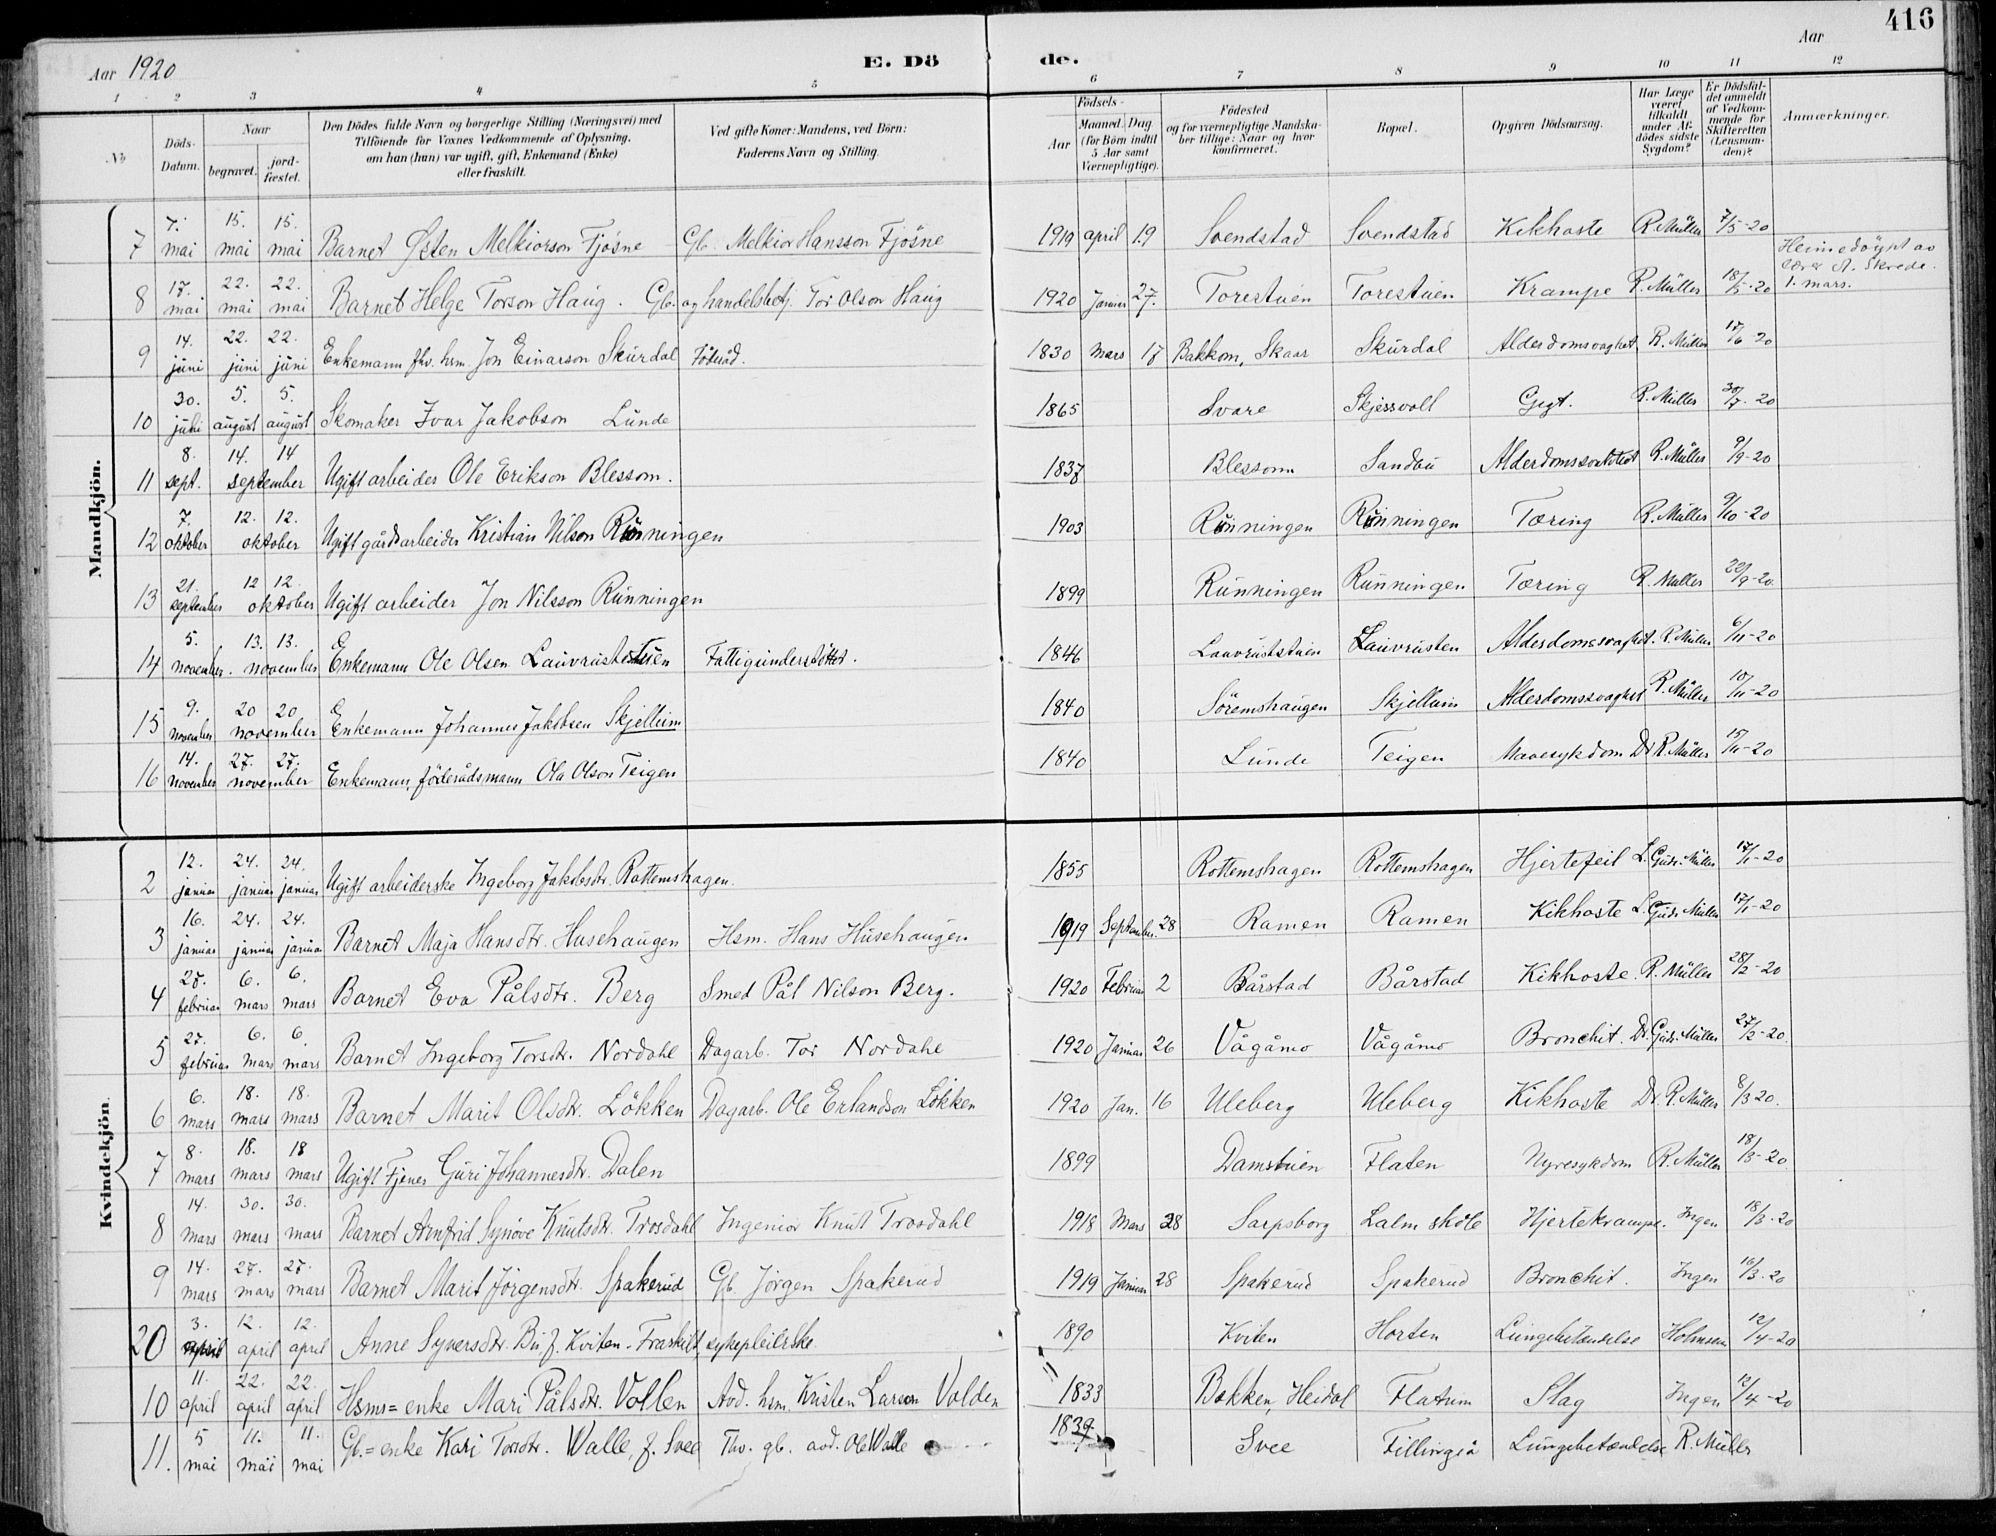 Aar 1920 E. Dö de. Aar 416
1 2 3 4 5 6 7 8 9 10 11 12
No
Döds-Datum.
Naar
begravet.
jord-fæstet.
Den Dödes fulde Navn og borgerlige Stilling (Næringsvei) med
Tilföiende for Voxnes Vedkommende af Oplysning,
om han (hun) var ugift, gift, Enkemand (Enke)
eller fraskilt.
Ved gifte Koner: Mandens, ved Börn:
Faderens Navn og Stilling.
Födsels-
Aar
Maaned. Dag
(for Börn indtil
5 Aar samt
Værnepligtige).
Födested
og for værnepligtige Mandska-
ber tillige: Naar og hvor
konfirmeret.
Bopæl.
Opgiven Dödsaarsag.
Har Læge
været
tilkaldt
under Af-
dödes sidste
Sygdom?
Er Dödsfal-
det anmeldt
af Vedkom-
mende for
Skifteretten
(Lensman-
den)?
Anmærkninger.
Mandkjön.
7 7. mai 15. mai 15. mai Barnet Østen Melkiorson Fjösne Gb. Melkior Hansson Fjösne 1919 april 19 Svendstad Svendstad Kikhoste R. Müller 7/5-20
8 17. mai 22. mai 22. mai Barnet Helge Torson Haug. Gb. og handelsbetj. Tor Olson Haug 1920 Januar 27. Torestuen Torestuen Krampe R. Müller 18/5-20 Heimedöypt av lærer A. Skrede. 1. mars.
9 14. juni 22. juni 22. juni Enkemann fhv. hsm Jon Einarson Skurdal Föderåd. 1830 Mars 17 Bakkom, Skaar Skurdal Alderdomsvaghet R. Müller 17/6 20
10 30. juli 5. august 5. august Skomaker Ivar Jakobson Lunde 1865 Svare Skjessvoll Gigt. R. Müller 30/7-20
11 8. sept. 14. 14 september Ugift arbeider Ole Erikson Blessom. 1837 Blessom Sandbu Alderdomssvakhet R. Müller 9/9-20
12 7. oktober 12. 12. oktober Ugift gårdsarbeider Kristian Nilson Rünningen 1903 Rünningen Rünningen Tæring R. Müller 9/10-20
13 21. september 12 12. oktober Ugift arbeider Jon Nilsson Rünningen 1899 Rünningen Rünningen Tæring R. Müller 22/9-20
14 5. november. 13. 13. november Enkemann Ole Olsen Lauvrustestuen Fattigunderstöttet. 1846 Lauvruststuen Lauvrusten Alderdomssvaghet. R. Müller 6/11-20
15 9. november 20 20 november Enkemann Johannes Jakobsen Skjellum 1840 Söremshaugen Skjellum Alderdomssvaghet R. Müller 10/11-20
16 14. november 27. 27. november Enkemann, föderådsmann Ola Olson Teigen 1840 Lunde Teigen Mavesykdom Dr R. Müller 15/11-20
Kvindekjön.
2 12. januar 24. januar 24. januar Ugift arbeiderske Ingeborg Jakobsdtr. Rottemshagen. 1855 Rottemshagen Rottemshagen Hjertefeil L. Gudr. Müller 17/1-20
3 16. januar 24. januar 24. januar Barnet Maja Hansdtr. Husehaugen Hsm. Hans Husehaugen 1919 September 28 Ramen Ramen Kikhoste L. Gudr. Müller 17/1-20
4 27. februar 6. mars 6. mars Barnet Eva Pålsdtr. Berg Smed Pål Nilson Berg. 1920 Februar 2 Bårstad Bårstad Kikhoste. R. Müller 28/2-20
5 27. februar 6. mars 6. mars Barnet Ingeborg Torsdtr. Nordahl Dagarb. Tor Nordahl 1920 Januar 26 Vågåmo Vågåmo Bronchit. Dr. Gudr. Müller 27/2-20.
6 6. mars 18. mars 18. mars Barnet Marit Olsdtr. Lökken Dagarb. Ole Erlandson Lökken 1920 Jan. 16 Uleberg Uleberg Kikhoste Dr. R. Müller 8/3 20.
7 8. mars 18. mars 18 mars Ugift Tjener Guri Johannesdtr. Dalen 1899 Damstuen Flaten Nyresykdom R. Müller 18/3-20
8 14. mars 30. mars 30. mars Barnet Arnfrid Synöve Knutsdtr. Trosdahl Ingeniör Knut Trosdahl 1918 Mars 28 Sarpsborg Lalm skole Hjertekrampe. Ingen 18/3-20
9 14. mars 27. mars 27. mars Barnet Marit Jörgensdtr. Spakerud Gb. Jörgen Spakerud 1919 Januar 28 Spakerud Spakerud Bronchit. Ingen 16/3-20
20 3. april 12. april 12. april Anne Syversdtr. Bu, f. Kviten - Fraskilt, sykepleierske. 1890 Kviten Horten Lungebetændelse Holmsen 12/4-20
10 11. april 22. april 22. april Hsms=enke Mari Pålsdtr. Vollen Avd. hsm. Kristen Larson Volden 1833 Bakken, Heidal Flatum Slag Ingen 12/4-20
11. 5 mai 11. mai 11. mai Gb.=enke Kari Torsdtr. Walle, f. Svee Fhv. gb. avd. Ole Walle 1837 Svee Tillingså Lungebetændelse R. Müller